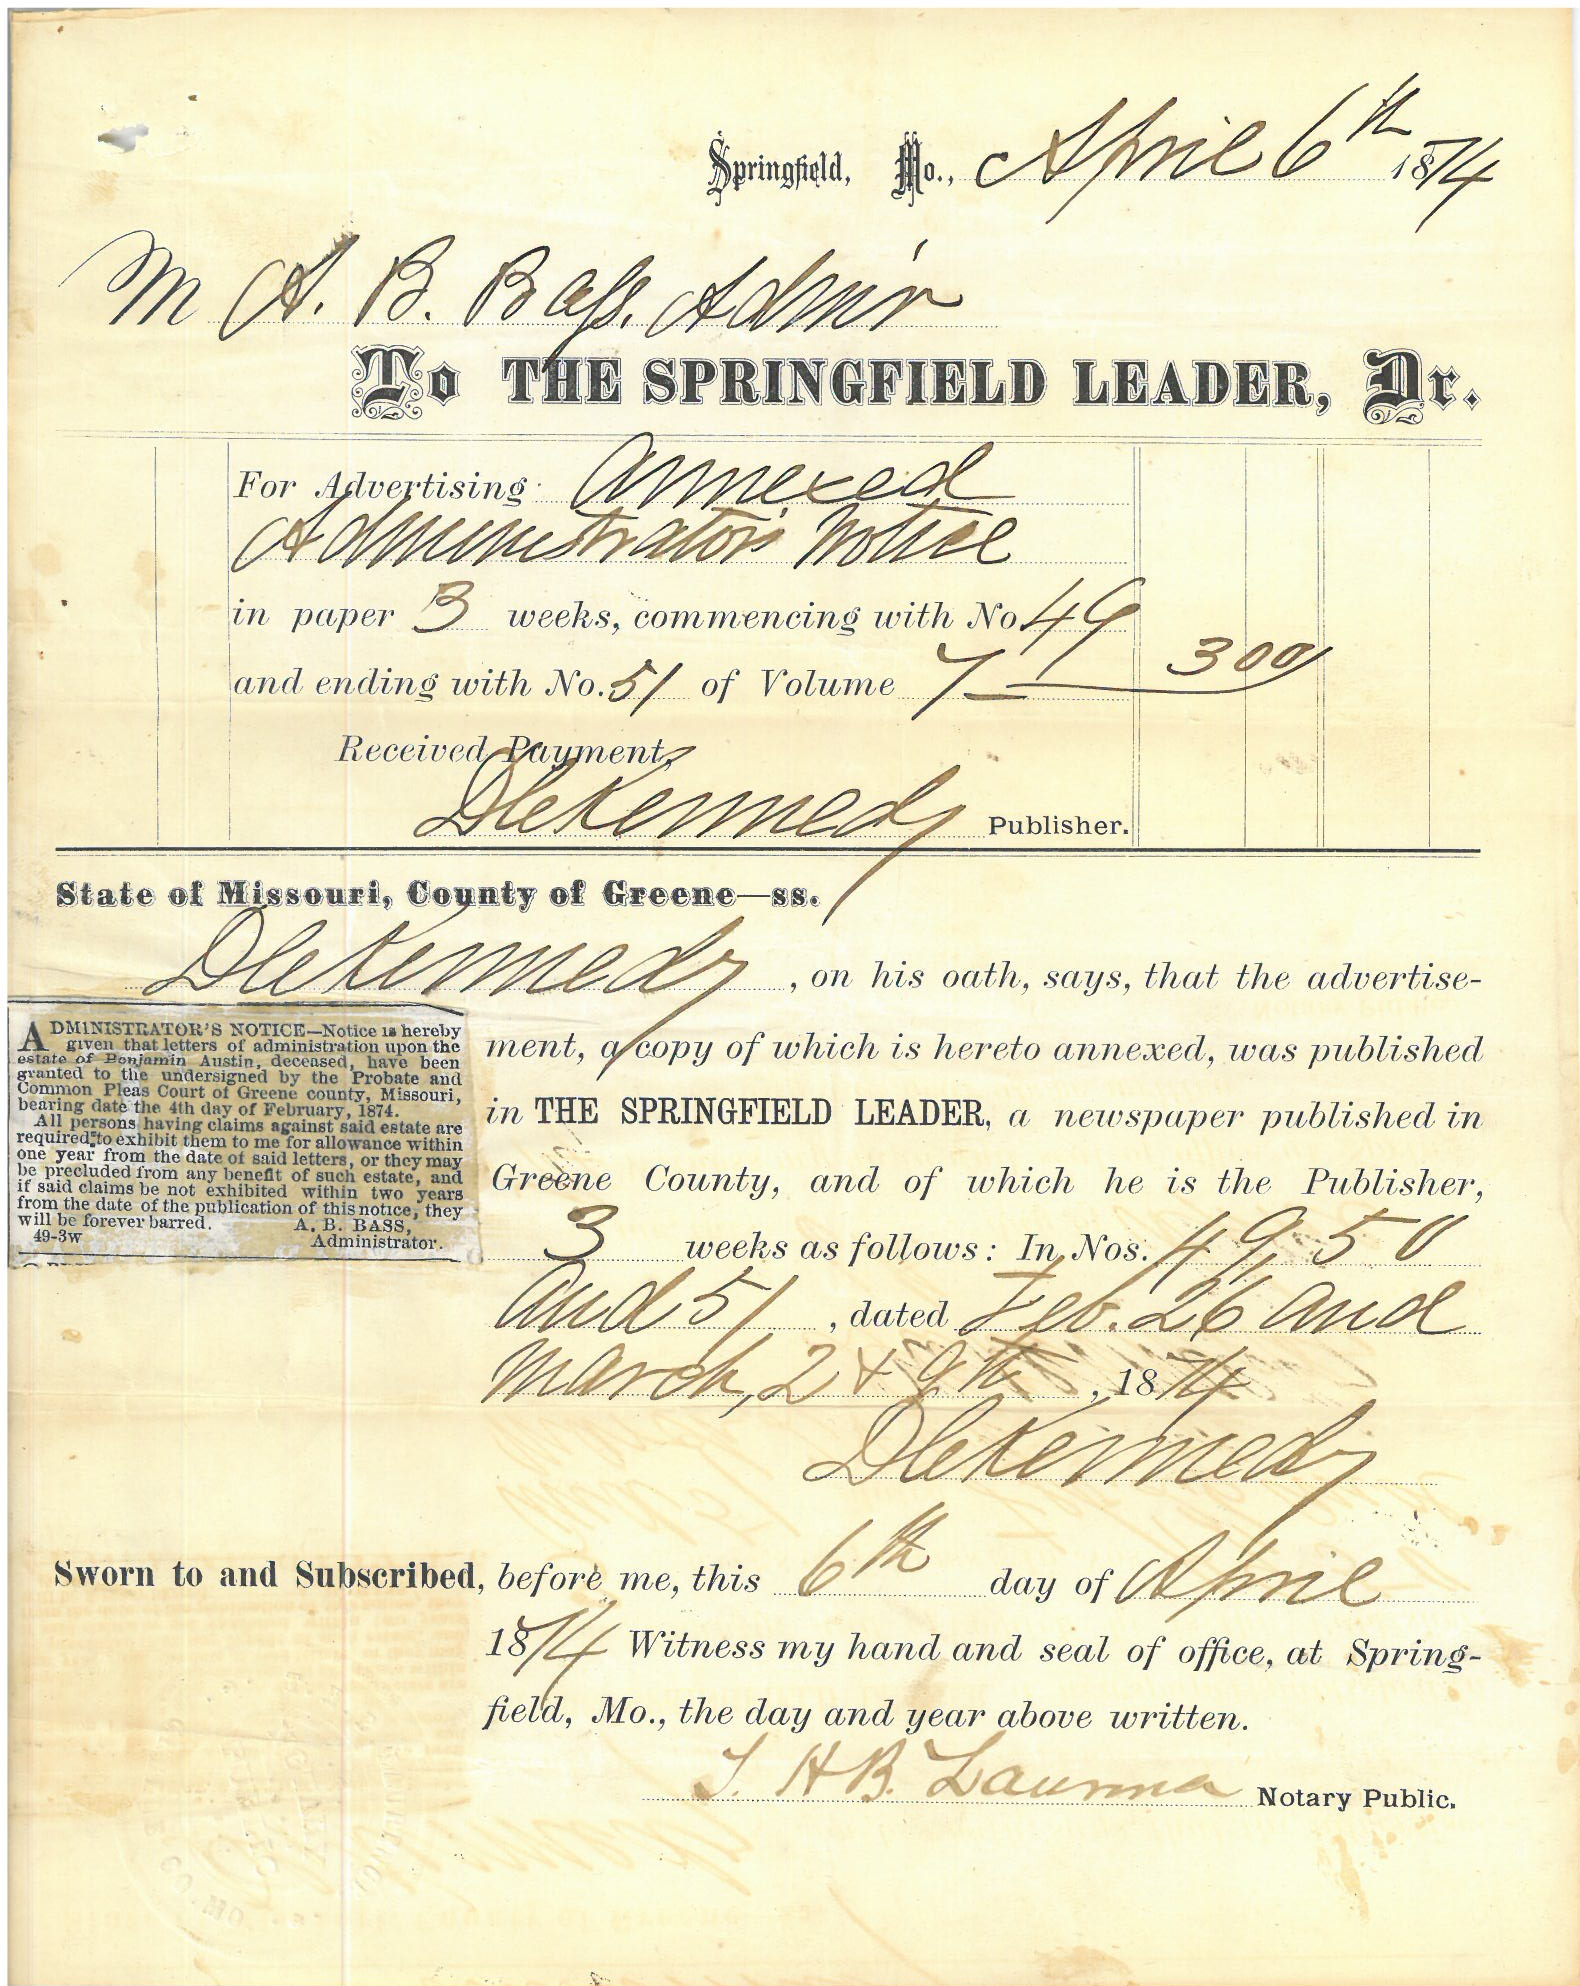 Springfield, Mo., April 6th 1874
M A. B. Bass. Adm'r
To THE SPRINGFIELD LEADER, Dr.
For Advertising annexed
Administrator's Notice
in paper 3 weeks, commencing with No 49
and ending with No. 51 of Volume 7 3 00
Received Payment,
D C Kennedy Publisher.
State of Missouri, County of Greene—ss.
D C Kennedy, on his oath, says, that the advertise-
ment, a copy of which is hereto annexed, was published
in THE SPRINGFIELD LEADER, a newspaper published in
Greene County, and of which he is the Publisher,
3 weeks as follows: In Nos. 49, 50
and 51, dated Feb. 26 and
March, 2 & 9th, 1874
D C Kennedy
ADMINISTRATOR'S NOTICE—Notice is hereby
given that letters of administration upon the
estate of Benjamin Austin, deceased, have been
granted to the undersigned by the Probate and
Common Pleas Court of Greene county, Missouri,
bearing date the 4th day of February, 1874.
All persons having claims against said estate are
required to exhibit them to me for allowance within
one year from the date of said letters, or they may
be precluded from any benefit of such estate, and
if said claims be not exhibited within two years
from the date of the publication of this notice, they
will be forever barred. A. B. BASS,
49-3w Administrator.
Sworn to and Subscribed, before me, this 6th day of April
1874 Witness my hand and seal of office, at Spring-
field, Mo., the day and year above written.
H B. Notary Public.